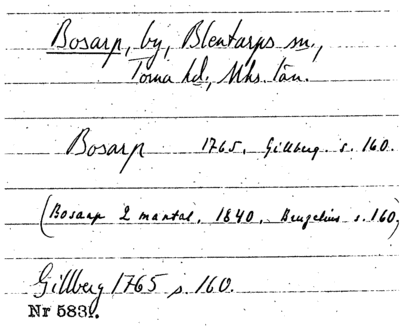 Bosarp, by, Blentarps sn.,
Torna hd., Mhs. län.
Bosarp 1765. Gillberg. s. 160.
(Bosarp 2 mantal. 1840. Bengelius s. 160)
Gillberg 1765 s. 160.
Nr 5831.